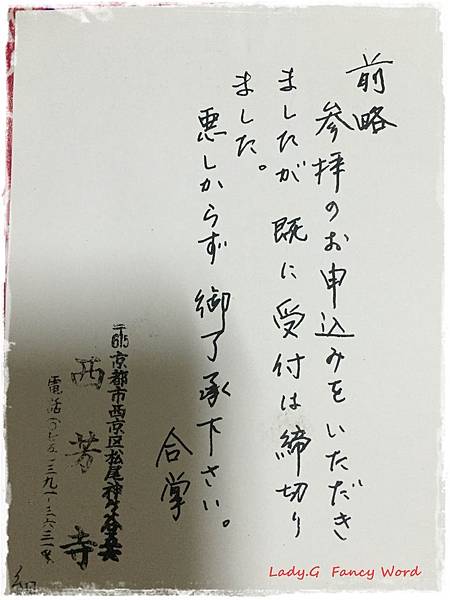 前略
参拝のお申込みをいただき
ましたが 既に受付は締切り
ました。
悪しからず 御了承下さい。
合掌
〒615京都市西京区松尾神ケ谷
西芳寺
電話(〇七五)三九一-三六三一
Lady.G Fancy Word